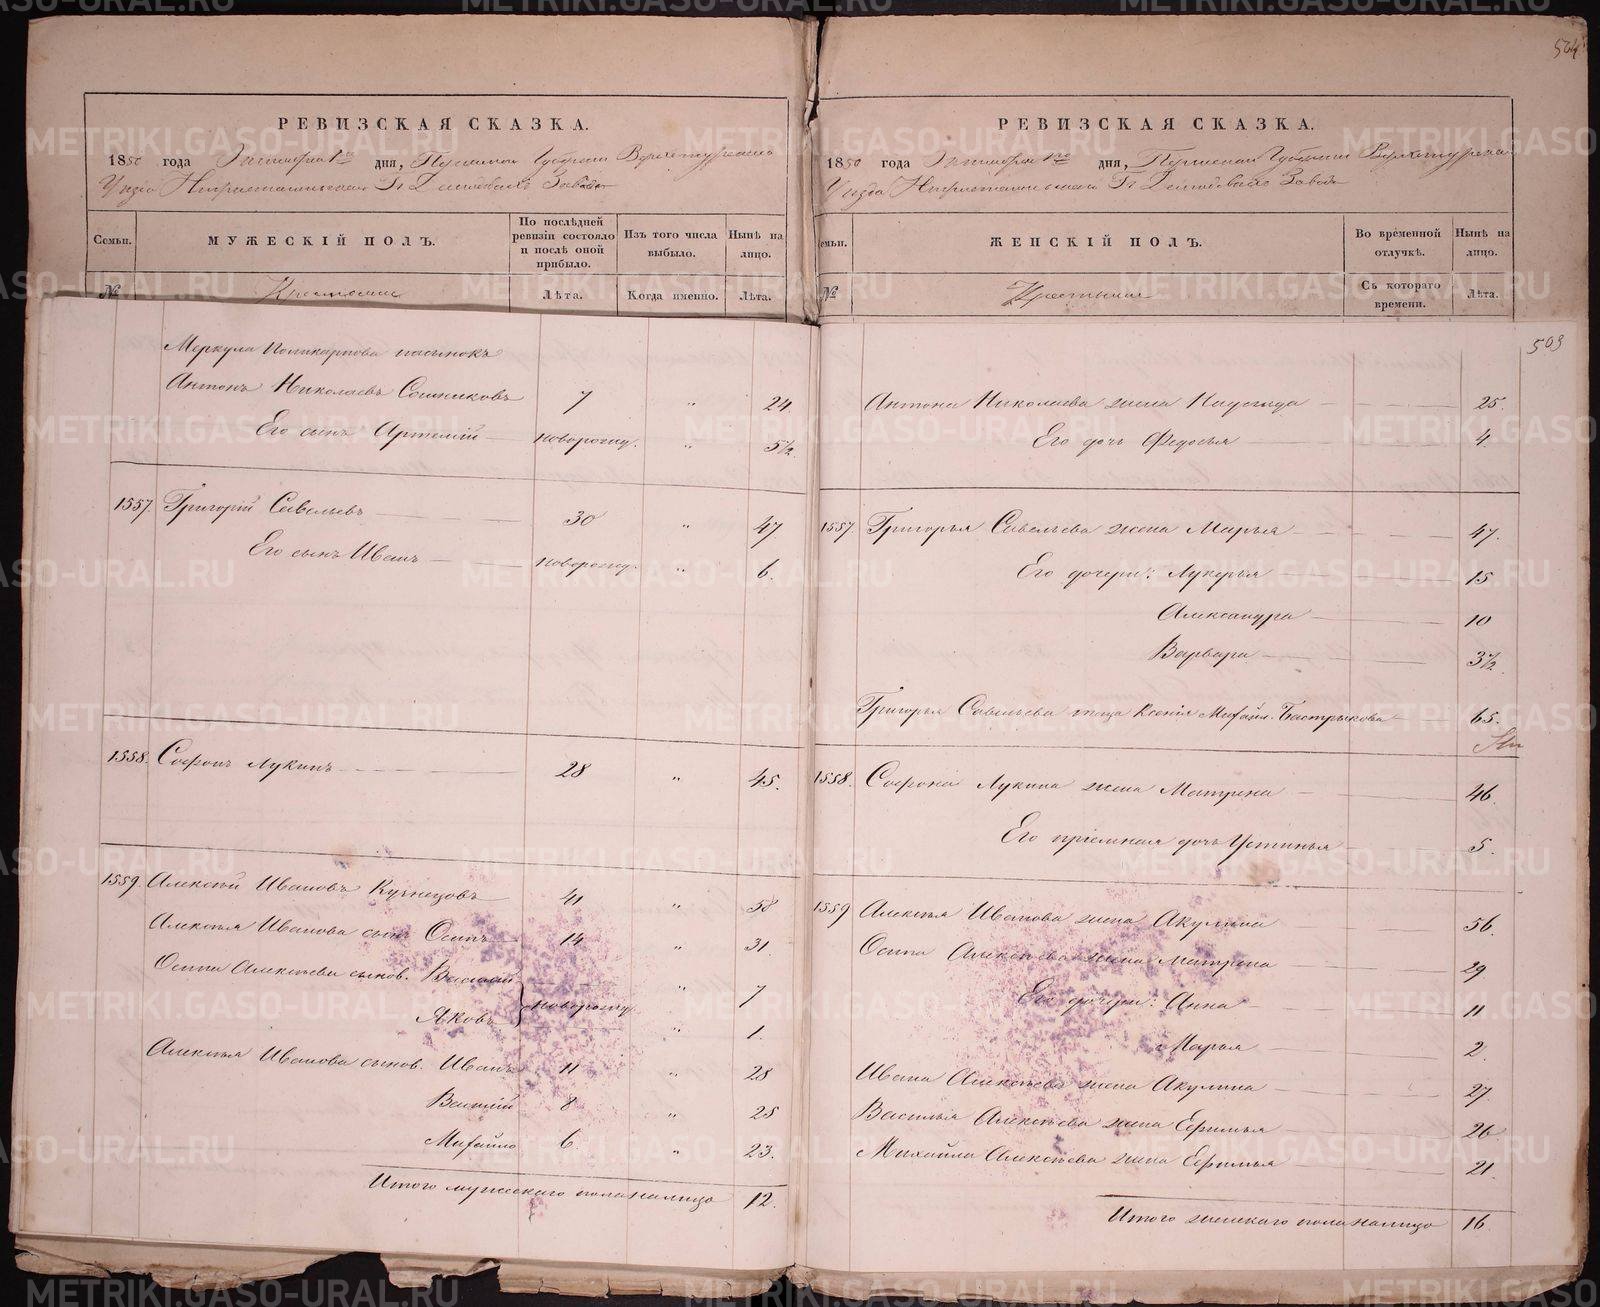 504
РЕВИЗСКАЯ СКАЗКА.
1850 года Октября 1го дня, Пермской Губернии Верхотурскаго
Уѣзда Заводъ
Семьи.
МУЖЕСКІЙ ПОЛЪ.
По послѣдней ревизіи состояло и послѣ оной прибыло.
Изъ того числа выбыло.
Нынѣ на лицо.
№
Крестьяне
Лѣта.
Когда именно.
Лѣта.
Меркула Поликарпова пасынокъ
Антонъ Николаевъ Сошниковъ 7 " 24.
Его сынъ Артемій новорожд. " 5½
1557. Григорій Савельевъ 30 " 47.
Его сынъ Иванъ новорожд. " 6.
1558. Софонъ Лукинъ 28 " 45.
1559. Алексѣй Ивановъ Кузнецовъ 41 " 58
Алексѣя Иванова сынъ Осипъ 14 " 31.
Осипа Алексѣева сынов. Василій новорожд. " 7
Яковъ " 1.
Алексѣя Иванова сынов. Иванъ 11 " 28
Василій 8 " 25
Михайло 6. " 23.
Итого мужескаго пола налицо 12.
РЕВИЗСКАЯ СКАЗКА.
1850 года Октября 1го дня, Пермской Губерніи Верхотурска
Уѣзда Завода
Семьи.
ЖЕНСКІЙ ПОЛЪ.
Во временной отлучкѣ.
Нынѣ на лицо.
№
Крестьяне
Съ котораго времени.
Лѣта.
503
Антона Николаева жена Надежда 25.
Его дочь Федосья 4.
1557. Григорья Савельева жена Марья 47.
Его дочери: Лукерья 15
Александра 10
Варвара 3½
Григорья Савельева теща Ксенія Михайл. Бастрыкова 65.
1558. Софона Лукина жена Матрена 46.
Его пріемная дочь Устинья 5.
1559 Алексѣя Иванова жена Акулина 56.
Осипа Алексѣева жена Матрена 29
Его дочери: Анна 11
Марья 2.
Ивана Алексѣева жена Акулина 27.
Василья Алексѣева жена Ефимья 26
Михайла Алексѣева жена Ефимья 21.
Итого женскаго пола налицо 16.
METRIKI.GASO-URAL.RU